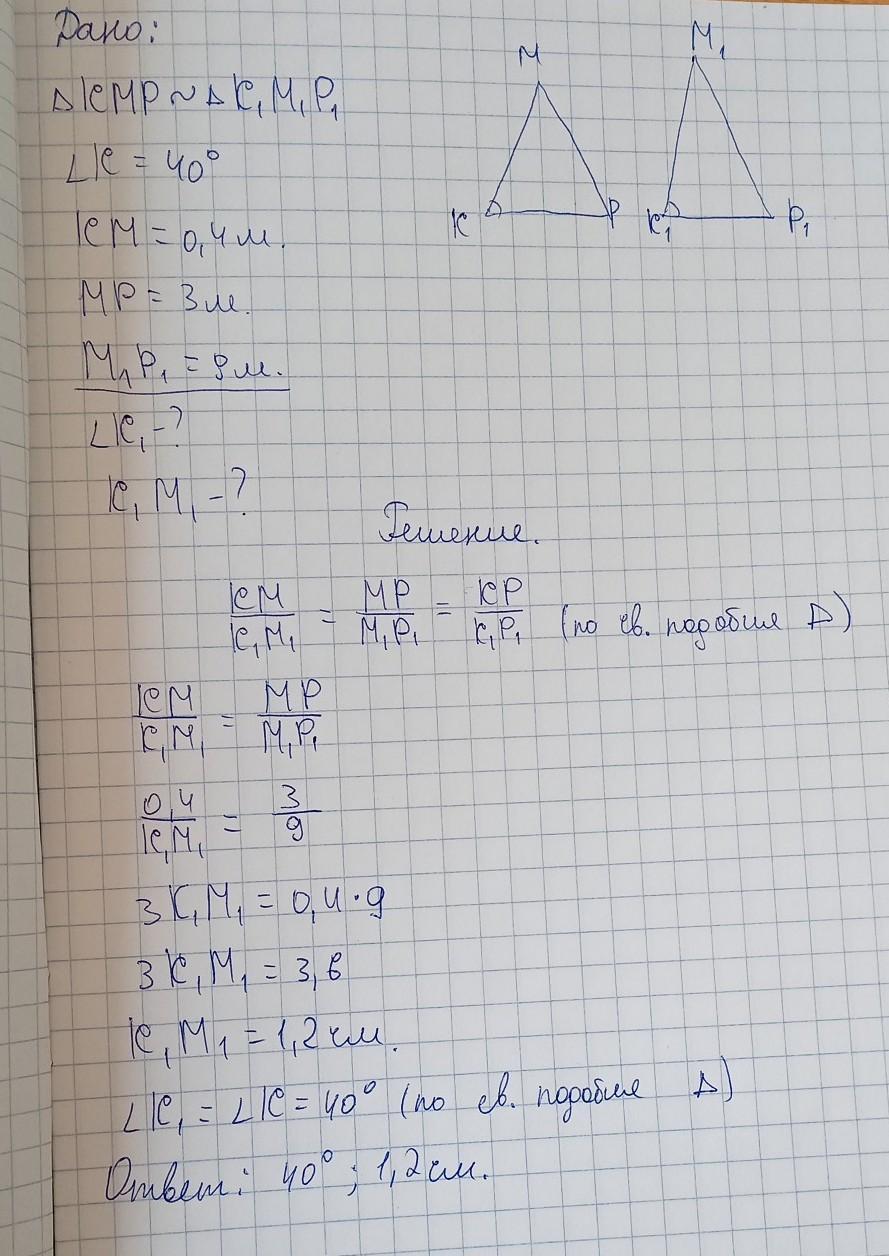 Дано:
△KMP ~ △K₁M₁P₁
∠K = 40°
KM = 0,4 м.
MP = 3 м.
M₁P₁ = 9 м.
∠K₁ - ?
K₁M₁ - ?
M
K
P
M₁
K₁
P₁
Решение.
KM/K₁M₁ = MP/M₁P₁ = KP/K₁P₁ (по св. подобия △)
KM/K₁M₁ = MP/M₁P₁
0,4/K₁M₁ = 3/9
3K₁M₁ = 0,4 · 9
3K₁M₁ = 3,6
K₁M₁ = 1,2 см.
∠K₁ = ∠K = 40° (по св. подобия △)
Ответ: 40° ; 1,2 см.